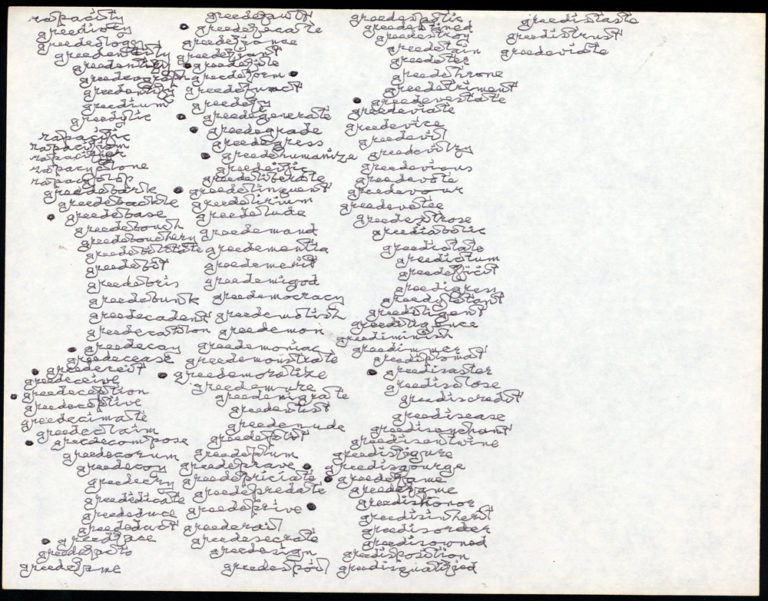 rapacity
greedivoy
greedeology
greedentity
greedentify
greedeograph
greedentity
greedium
greedolic
rapacific
rapacifism
rapacifier
rapacyclone
rapacystop
greedebark
greedebacle
greedebase
greedebauch
greedebauchery
greedebilitate
greedebit
greedebris
greedebunk
greedecadent
greedecathlon
greedecay
greedecease
greedeceit
greedeceive
greedeception
greedeceptive
greedecimate
greedeclaim
greedecompose
greedecorum
greedecoy
greedecry
greededicate
greededuce
greededuct
greedeface
greedefacto
greedefame
greedefault
greedefecate
greedefense
greedefiant
greedefile
greedeform
greedefunct
greedefy
greedegenerate
greedegrade
greedegress
greedehumanize
greedeific
greedeliberate
greedelinquent
greedelirium
greedelude
greedemand
greedementia
greedemerit
greedemigod
greedemocracy
greedemolish
greedemon
greedemoniac
greedemonstrate
greedemoralize
greedemure
greedenigrate
greedentist
greedenude
greedepict
greedeplum
greedeprave
greedepreciate
greedepredate
greedeprive
greederail
greedesecrate
greedesign
greedespoil
greedespotic
greedestined
greedestroy
greedetain
greedeter
greedethrone
greedetriment
greedevastate
greedeviate
greedevice
greedevil
greedevilry
greedevious
greedevote
greedevour
greedevotee
greedextrose
greediabolic
greedictate
greedictum
greedeficit
greedigress
greedigitent
greediligent
greediligence
greediminish
greedimmer
greediplomat
greedisaster
greedisclose
greediscredit
greedisease
greedisenchant
greedisentwine
greedisfigure
greedisgourge
greedefame
greedefame
greedishonor
greedisinherit
greedisorder
greedisowned
greedisposition
greedisqualified
greedistaste
greedistrust
greedeviate